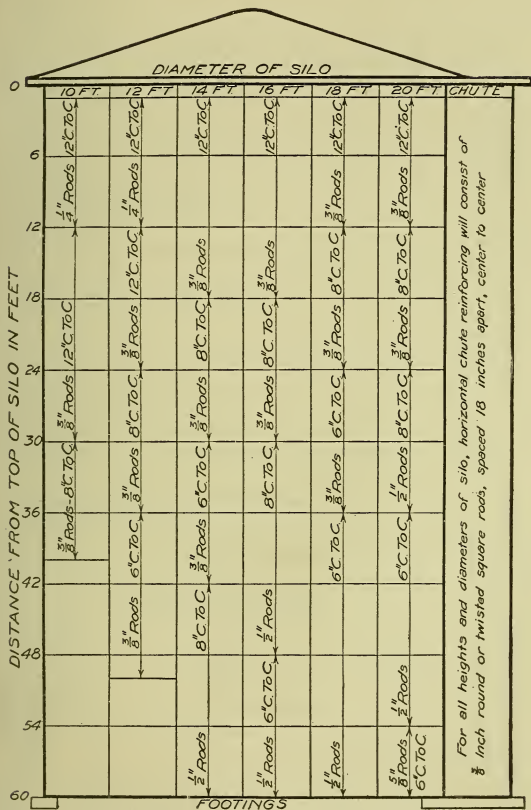 DIAMETER OF SILO
10 FT 12 FT 14 FT 16 FT 18 FT 20 FT CHUTE
DISTANCE FROM TOP OF SILO IN FEET
0
6
12
18
24
30
36
42
48
54
60
1/4" Rods 12"C.ToC
3/8" Rods 12"C.ToC
3/8" Rods-8"C.ToC
1/4" Rods 12"C.ToC
3/8" Rods 12"C.ToC
3/8" Rods 8"C.ToC
3/8" Rods 6"C.ToC
3/8" Rods 12"C.ToC
3/8" Rods 8"C.ToC
3/8" Rods 6"C.ToC
1/2" Rods 8"C.ToC
3/8" Rods 12"C.ToC
3/8" Rods 8"C.ToC
1/2" Rods 8"C.ToC
1/2" Rods 6"C.ToC
3/8" Rods 12"C.ToC
3/8" Rods 8"C.ToC
3/8" Rods 6"C.ToC
1/2" Rods 6"C.ToC
3/8" Rods 12"C.ToC
3/8" Rods 8"C.ToC
1/2" Rods 8"C.ToC
1/2" Rods 6"C.ToC
5/8" Rods
6"C.ToC
For all heights and diameters of silo, horizontal chute reinforcing will consist of
inch round or twisted square rods, spaced 18 inches apart, center to center
FOOTINGS